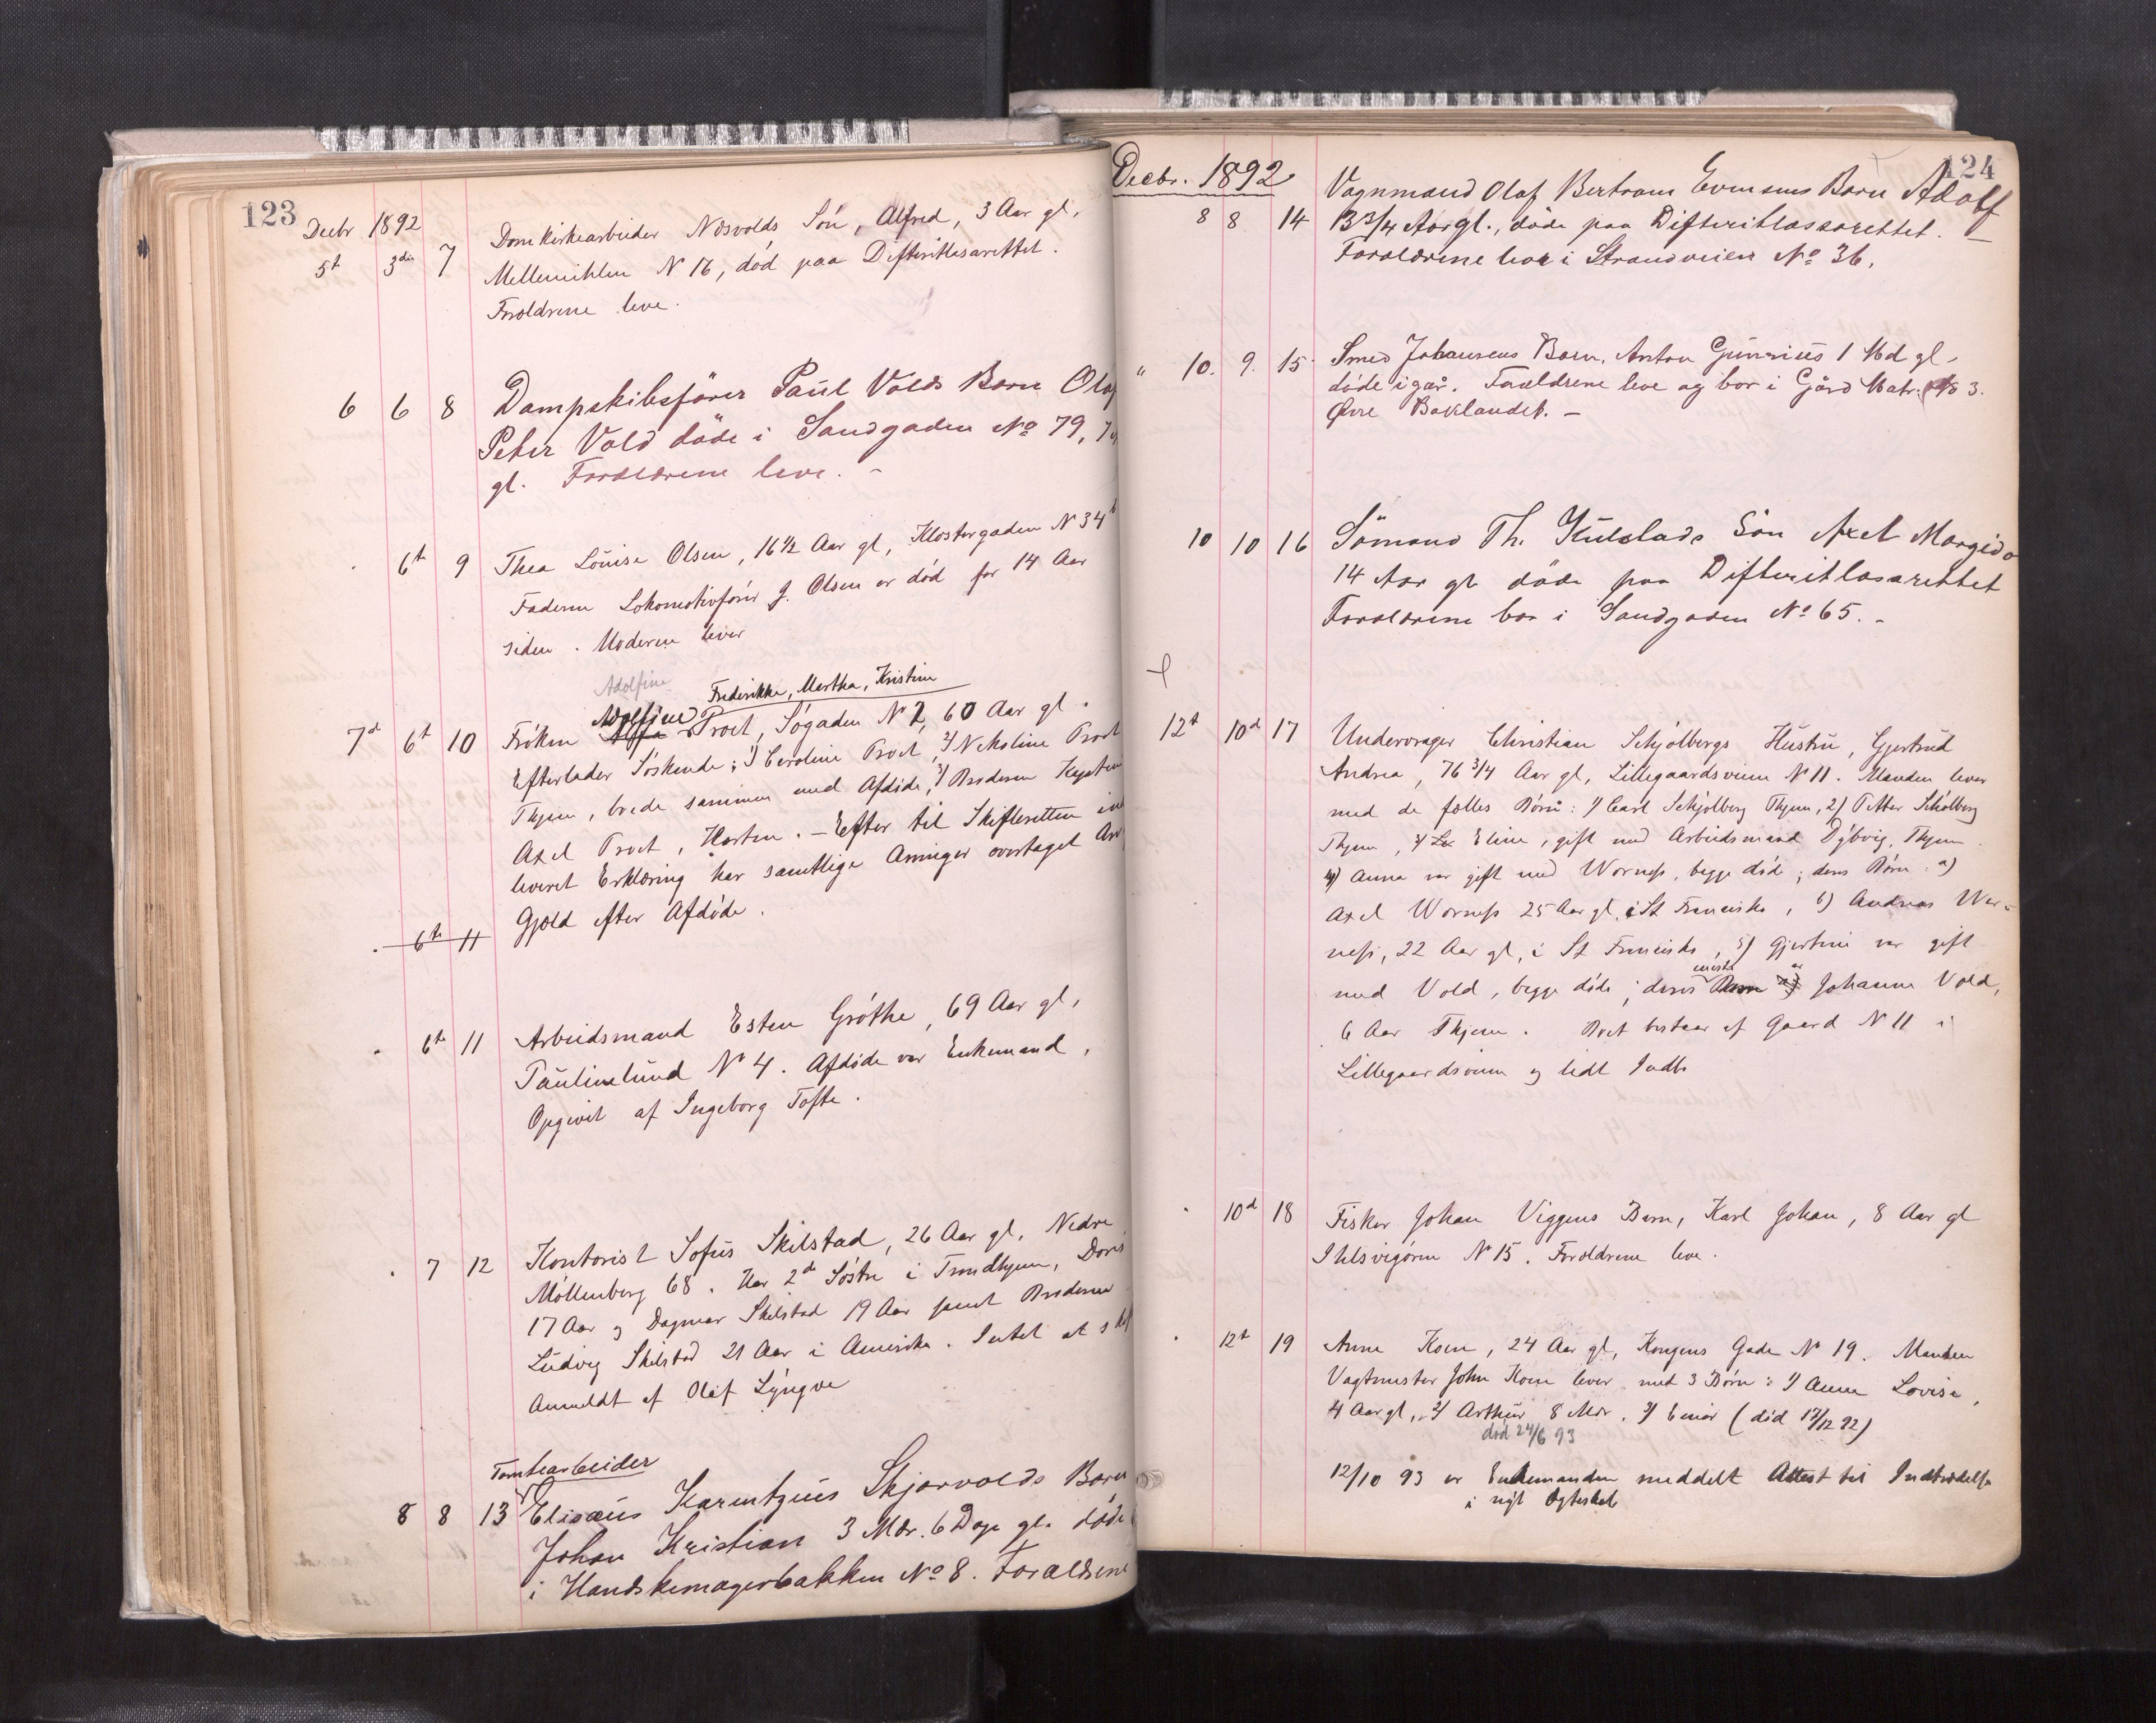 123
Decbr 1892
5t 3die 7 Domkirkearbeider Nosvolds Søn, Alfred, 3 Aar gl.
Mellemihlen N 16, død paa Difteritlasarettet.
Forældrene leve.
6 6 8 Dampskibsfører Paul Volds Barn Olaf
Peter Vold døde i Sandgaden No 79, 7
gl. Forældrene leve. -
6t 9 Thea Louise Olsen, 16½ Aar gl, Klostergaden N 34 b
Faderen Lokomotivfører J. Olsen er død for 14 Aar
siden. Moderen lever
Adolfine
Frederikke, Martha, Kristine
7d 6t 10 Frøken Adolfine Proet, Søgaden N 2, 60 Aar gl.
Efterlader Søskende: 1) Caroline Proet, 2) Nekoline Proet
Thjem, boede sammen med Afdøde, 3) Broderen Kaptein
Axel Proet, Horten. - Efter til Skifteretten ind
leveret Erklæring har samtlige Arvinger overtaget Arv
Gjæld efter Afdøde.
6te 11
6te 11 Arbeidsmand Esten Grøthe, 69 Aar gl,
Paulinelund N 4. Afdøde var Enkemand.
Opgivet af Ingeborg Tofte.
7 12 Kontorist Sofus Skilstad, 26 Aar gl, Nedre
Møllenberg 68. Har 2de Søstre i Trondhjem, Doris
17 Aar og Dagmar Skilstad 19 Aar samt Broderen
Ludvig Skilstad 21 Aar i Amerika. Intet at skif
Anmeldt af Olaf Lyngve
Tomtearbeider
8 8 13 Elisæus Karentzius Skjærvolds Barn
Johan Kristian 3 Mdr. 6 Dage gl. døde
i Handskemagerbakken No 8. Forældrene
124
Decbr. 1892
Vognmand Olaf Bertram Evensens Barn Adolf
8 8 14 13 3/4 Aar gl., døde paa Difteritlassarettet. -
Forældrene bor i Strandveien No 36.
" 10. 9. 15. Smed Johansens Barn, Anton Gunerius 1 Md gl -
døde igår. Forældrene leve og bor i Gård Matr. No 3.
Øvre Baklandet. -
10 10 16 Sömand Th. Kulslads Sön Axel Margido
14 Aar gl døde paa Difteritlasarettet
Forældrene bor i Sandgaden No 65. -
12t 10d 17 Undervrager Christian Schjølbergs Hustru, Gjertrud
Andrea, 76 3/4 Aar gl, Lillegaardsveien N 11. Manden lever
med de fælles Børn: 1) Carl Schjølberg Thjem, 2) Petter Schølberg
Thjem, 3) Eline, gift med Arbeidsmand Dybvig, Thjem.
4) Anna var gift med Werness, begge døde; deres Børn: a)
Axel Werness 25 Aar gl, i St Francisko, b) Andreas Wer-
ness, 22 Aar gl, i St Francisko, 5) Gjertine var gift
med Vold, begge døde; deres eneste Barn er Johanne Vold,
6 Aar Thjem. Boet bestaar af Gaard N 11 i
Lillegaardsveien og lidt Indbo
10d 18 Fisker Johan Viggens Barn, Karl Johan, 8 Aar gl
Ihlsvigøren N 15. Forældrene leve.
12t 19 Anne Koen, 24 Aar gl, Kongens Gade N 19. Manden
Vagtmester John Koen lever med 3 Børn: 1) Anna Lovise,
4 Aar gl, 2) Arthur 8 Mdr, 3) Einar (død 17/12 92)
død 24/6 93
12/10 93 er Enkemanden meddelt Attest til Indtrædelse
i nyt Ægteskab